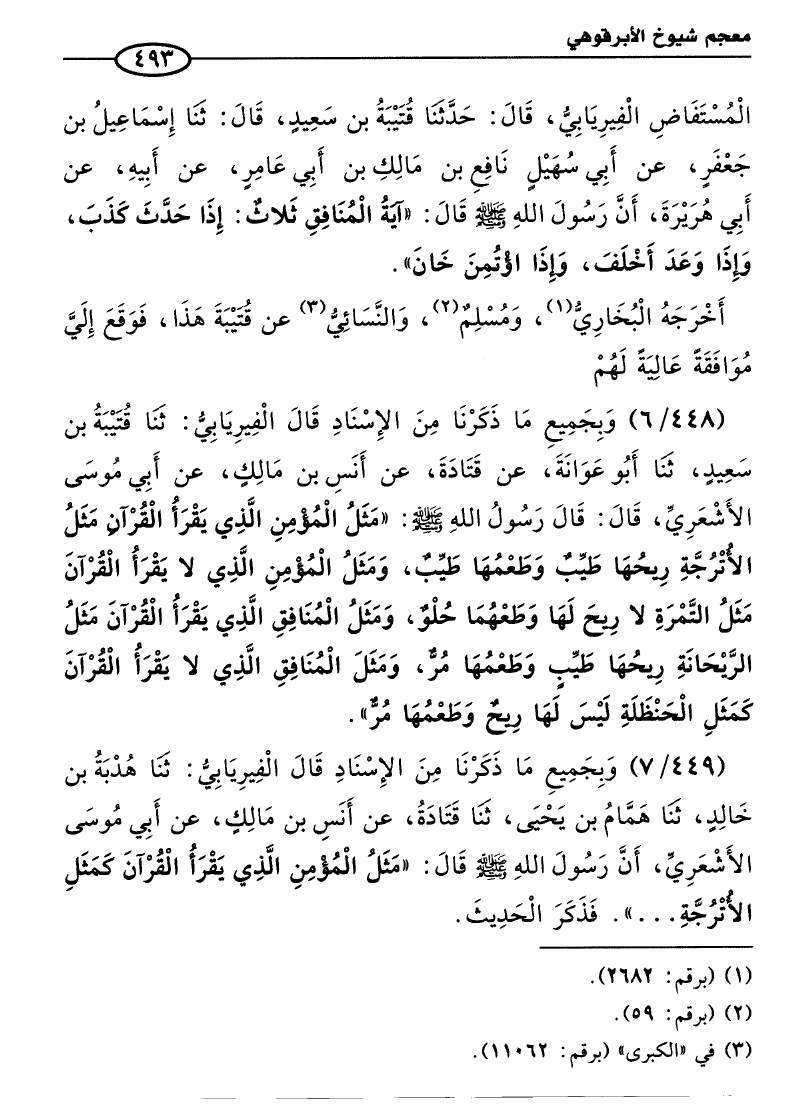 معجم شيوخ الأبرقوهي
٤٩٣
الْمُسْتَفَاضِ الْفِيرِيَابِيُّ، قَالَ: حَدَّثَنَا قُتَيْبَةُ بن سَعِيدٍ، قَالَ: ثَنَا إِسْمَاعِيلُ بن
جَعْفَرٍ، عن أَبِي سُهَيْلٍ نَافِعِ بن مَالِكِ بن أَبِي عَامِرٍ، عن أَبِيهِ، عن
أَبِي هُرَيْرَةَ، أَنَّ رَسُولَ اللهِ ﷺ قَالَ: «آيَةُ الْمُنَافِقِ ثَلاثٌ: إِذَا حَدَّثَ كَذَبَ،
وَإِذَا وَعَدَ أَخْلَفَ، وَإِذَا اؤْتُمِنَ خَانَ».
أَخْرَجَهُ الْبُخَارِيُّ(١)، وَمُسْلِمٌ(٢)، وَالنَّسَائِيُّ(٣) عن قُتَيْبَةَ هَذَا، فَوَقَعَ إِلَيَّ
مُوَافَقَةً عَالِيَةً لَهُمْ
(٦/٤٤٨) وَبِجَمِيعِ مَا ذَكَرْنَا مِنَ الإِسْنَادِ قَالَ الْفِيرِيَابِيُّ: ثَنَا قُتَيْبَةُ بن
سَعِيدٍ، ثَنَا أَبُو عَوَانَةَ، عن قَتَادَةَ، عن أَنَسِ بن مَالِكٍ، عن أَبِي مُوسَى
الأَشْعَرِيِّ، قَالَ: قَالَ رَسُولُ اللهِ ﷺ: «مَثَلُ الْمُؤْمِنِ الَّذِي يَقْرَأُ الْقُرْآنِ مَثَلُ
الأُتْرُجَّةِ رِيحُهَا طَيِّبٌ وَطَعْمُهَا طَيِّبٌ، وَمَثَلُ الْمُؤْمِنِ الَّذِي لا يَقْرَأُ الْقُرْآنَ
مَثَلُ التَّمْرَةِ لا رِيحَ لَهَا وَطَعْهُمَا حُلْوٌ، وَمَثَلُ الْمُنَافِقِ الَّذِي يَقْرَأُ الْقُرْآنَ مَثَلُ
الرَّيْحَانَةِ رِيحُهَا طَيِّبٍ وَطَعْمُهَا مُرٌّ، وَمَثَلَ الْمُنَافِقِ الَّذِي لا يَقْرَأُ الْقُرْآنَ
كَمَثَلِ الْحَنْظَلَةِ لَيْسَ لَهَا رِيحٌ وَطَعْمُهَا مُرٌّ».
(٧/٤٤٩) وَبِجَمِيعِ مَا ذَكَرْنَا مِنَ الإِسْنَادِ قَالَ الْفِيرِيَابِيُّ: ثَنَا هُدْبَةُ بن
خَالِدٍ، ثَنَا هَمَّامُ بن يَحْيَى، ثَنَا قَتَادَةُ، عن أَنَسِ بن مَالِكٍ، عن أَبِي مُوسَى
الأَشْعَرِيِّ، أَنَّ رَسُولَ اللهِ ﷺ قَالَ: «مَثَلُ الْمُؤْمِنِ الَّذِي يَقْرَأُ الْقُرْآنَ كَمَثَلِ
الأُتْرُجَّةِ...». فَذَكَرَ الْحَدِيثَ.
(١) (برقم: ٢٦٨٢).
(٢) (برقم: ٥٩).
(٣) في «الكبرى» (برقم: ١١٠٦٢).